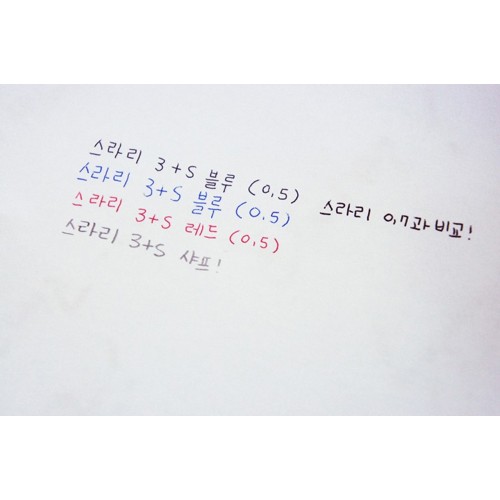 스라리 3+S 블루 (0,5)
스라리 3+S 블루 (0.5)
스라리 3+S 레드 (0,5)
스라리 3+S 샤프!
스라리 0,7과 비교!